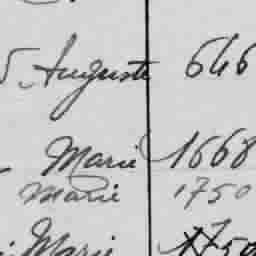 Auguste 646
Marie 1668
Marie 1750
Marie 1750